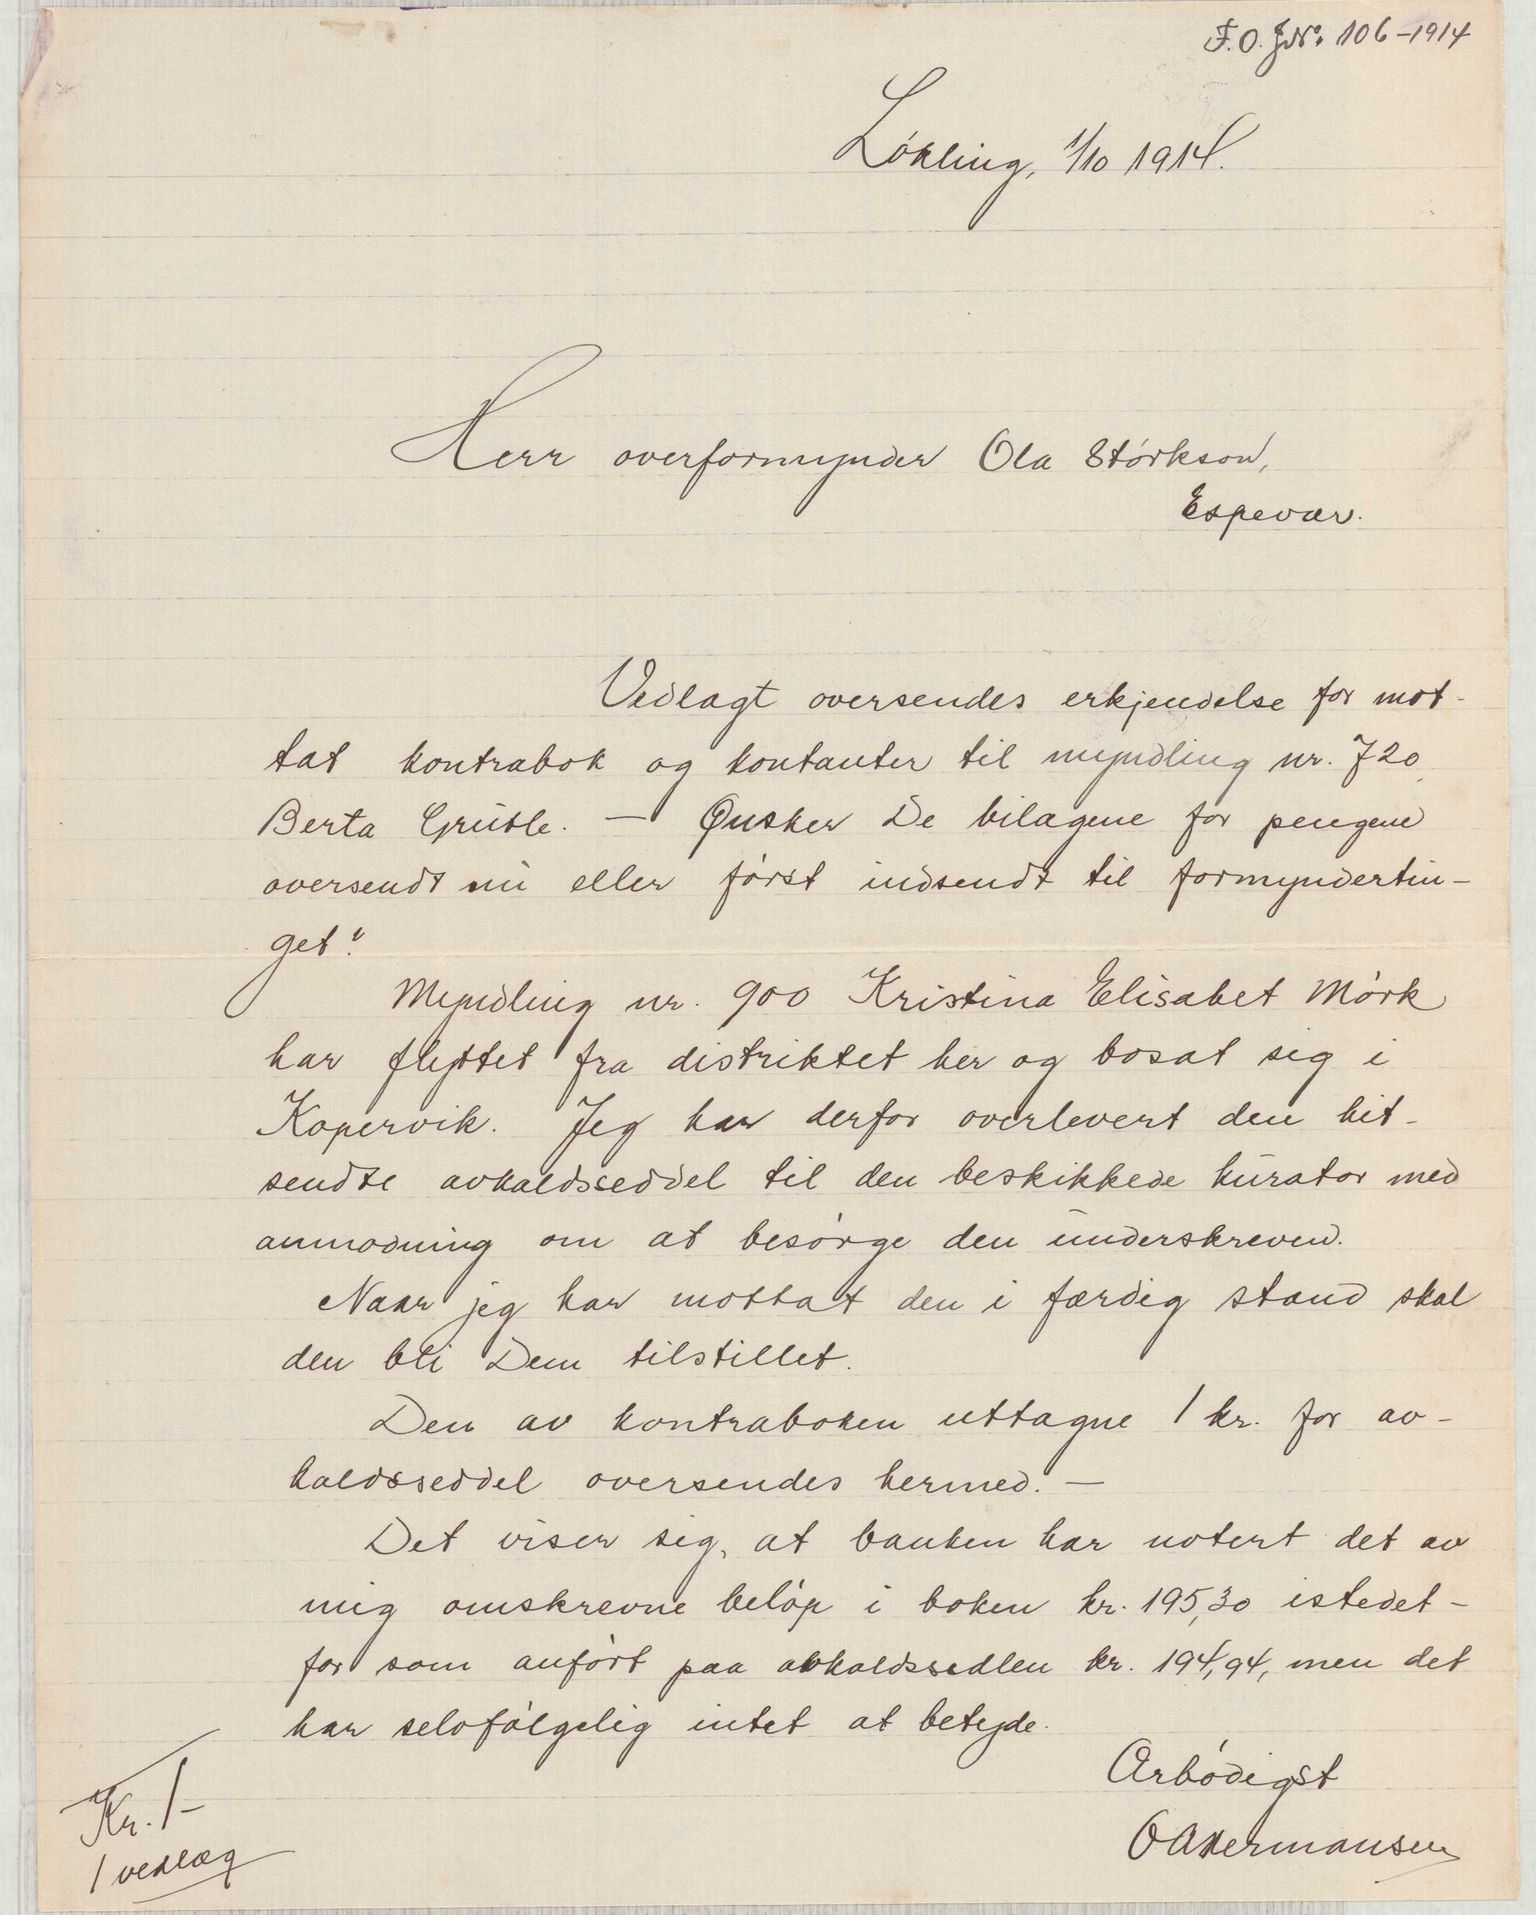 F.O. JNr. 106-1914
Løkling, 1/10 1914.
Herr overformynder Ola Størkson,
Espevær.
Vedlagt oversendes erkjendelse for mot-
tat kontrabok og kontanter til myndling nr. 720
Berta Grutle. — Ønsker De bilagene for pengene
oversendt nu eller først indsendt til formyndertin-
get?
Myndling nr. 900 Kristina Elisabet Mørk
har flyttet fra distriktet her og bosat sig i
Kopervik. Jeg har derfor overlevert den hit-
sendte avkaldsseddel til den beskikkede kurator med
anmodning om at besørge den underskreven.
Naar jeg har mottat den i færdig stand skal
den bli Dem tilstillet.
Den av kontraboken uttagne 1 kr. for av-
kaldsseddel oversendes hermed. —
Det viser sig, at banken har notert det av
mig omskrevne beløp i boken kr. 195,30 istedet-
for som anført paa avkaldssedlen kr. 194,94, men det
har selvfølgelig intet at betyde.
Ærbødigst
O Akermansen
Kr. 1-
1 vedlæg